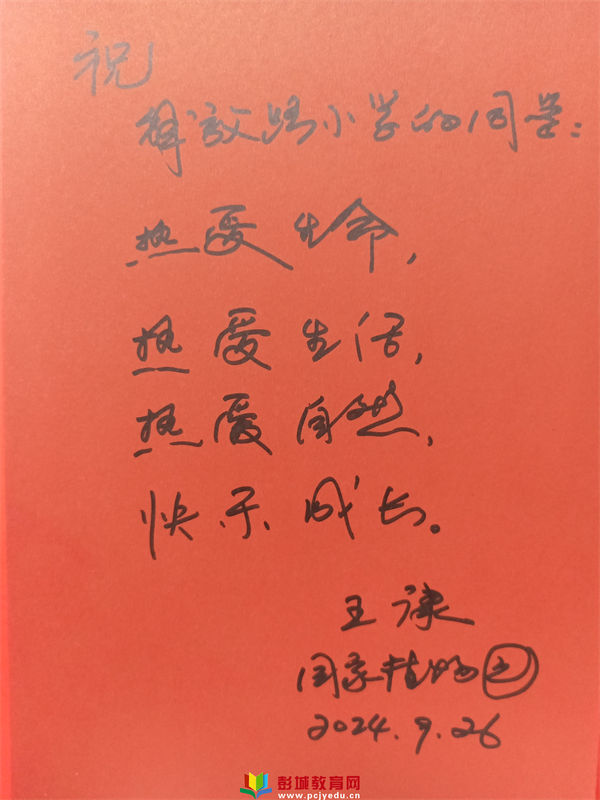 祝
解放路小学的同学：
热爱生命，
热爱生活，
热爱自然，
快乐成长。
王康
国家植物园
2024.9.26
彭城教育网
www.pcjyedu.cn